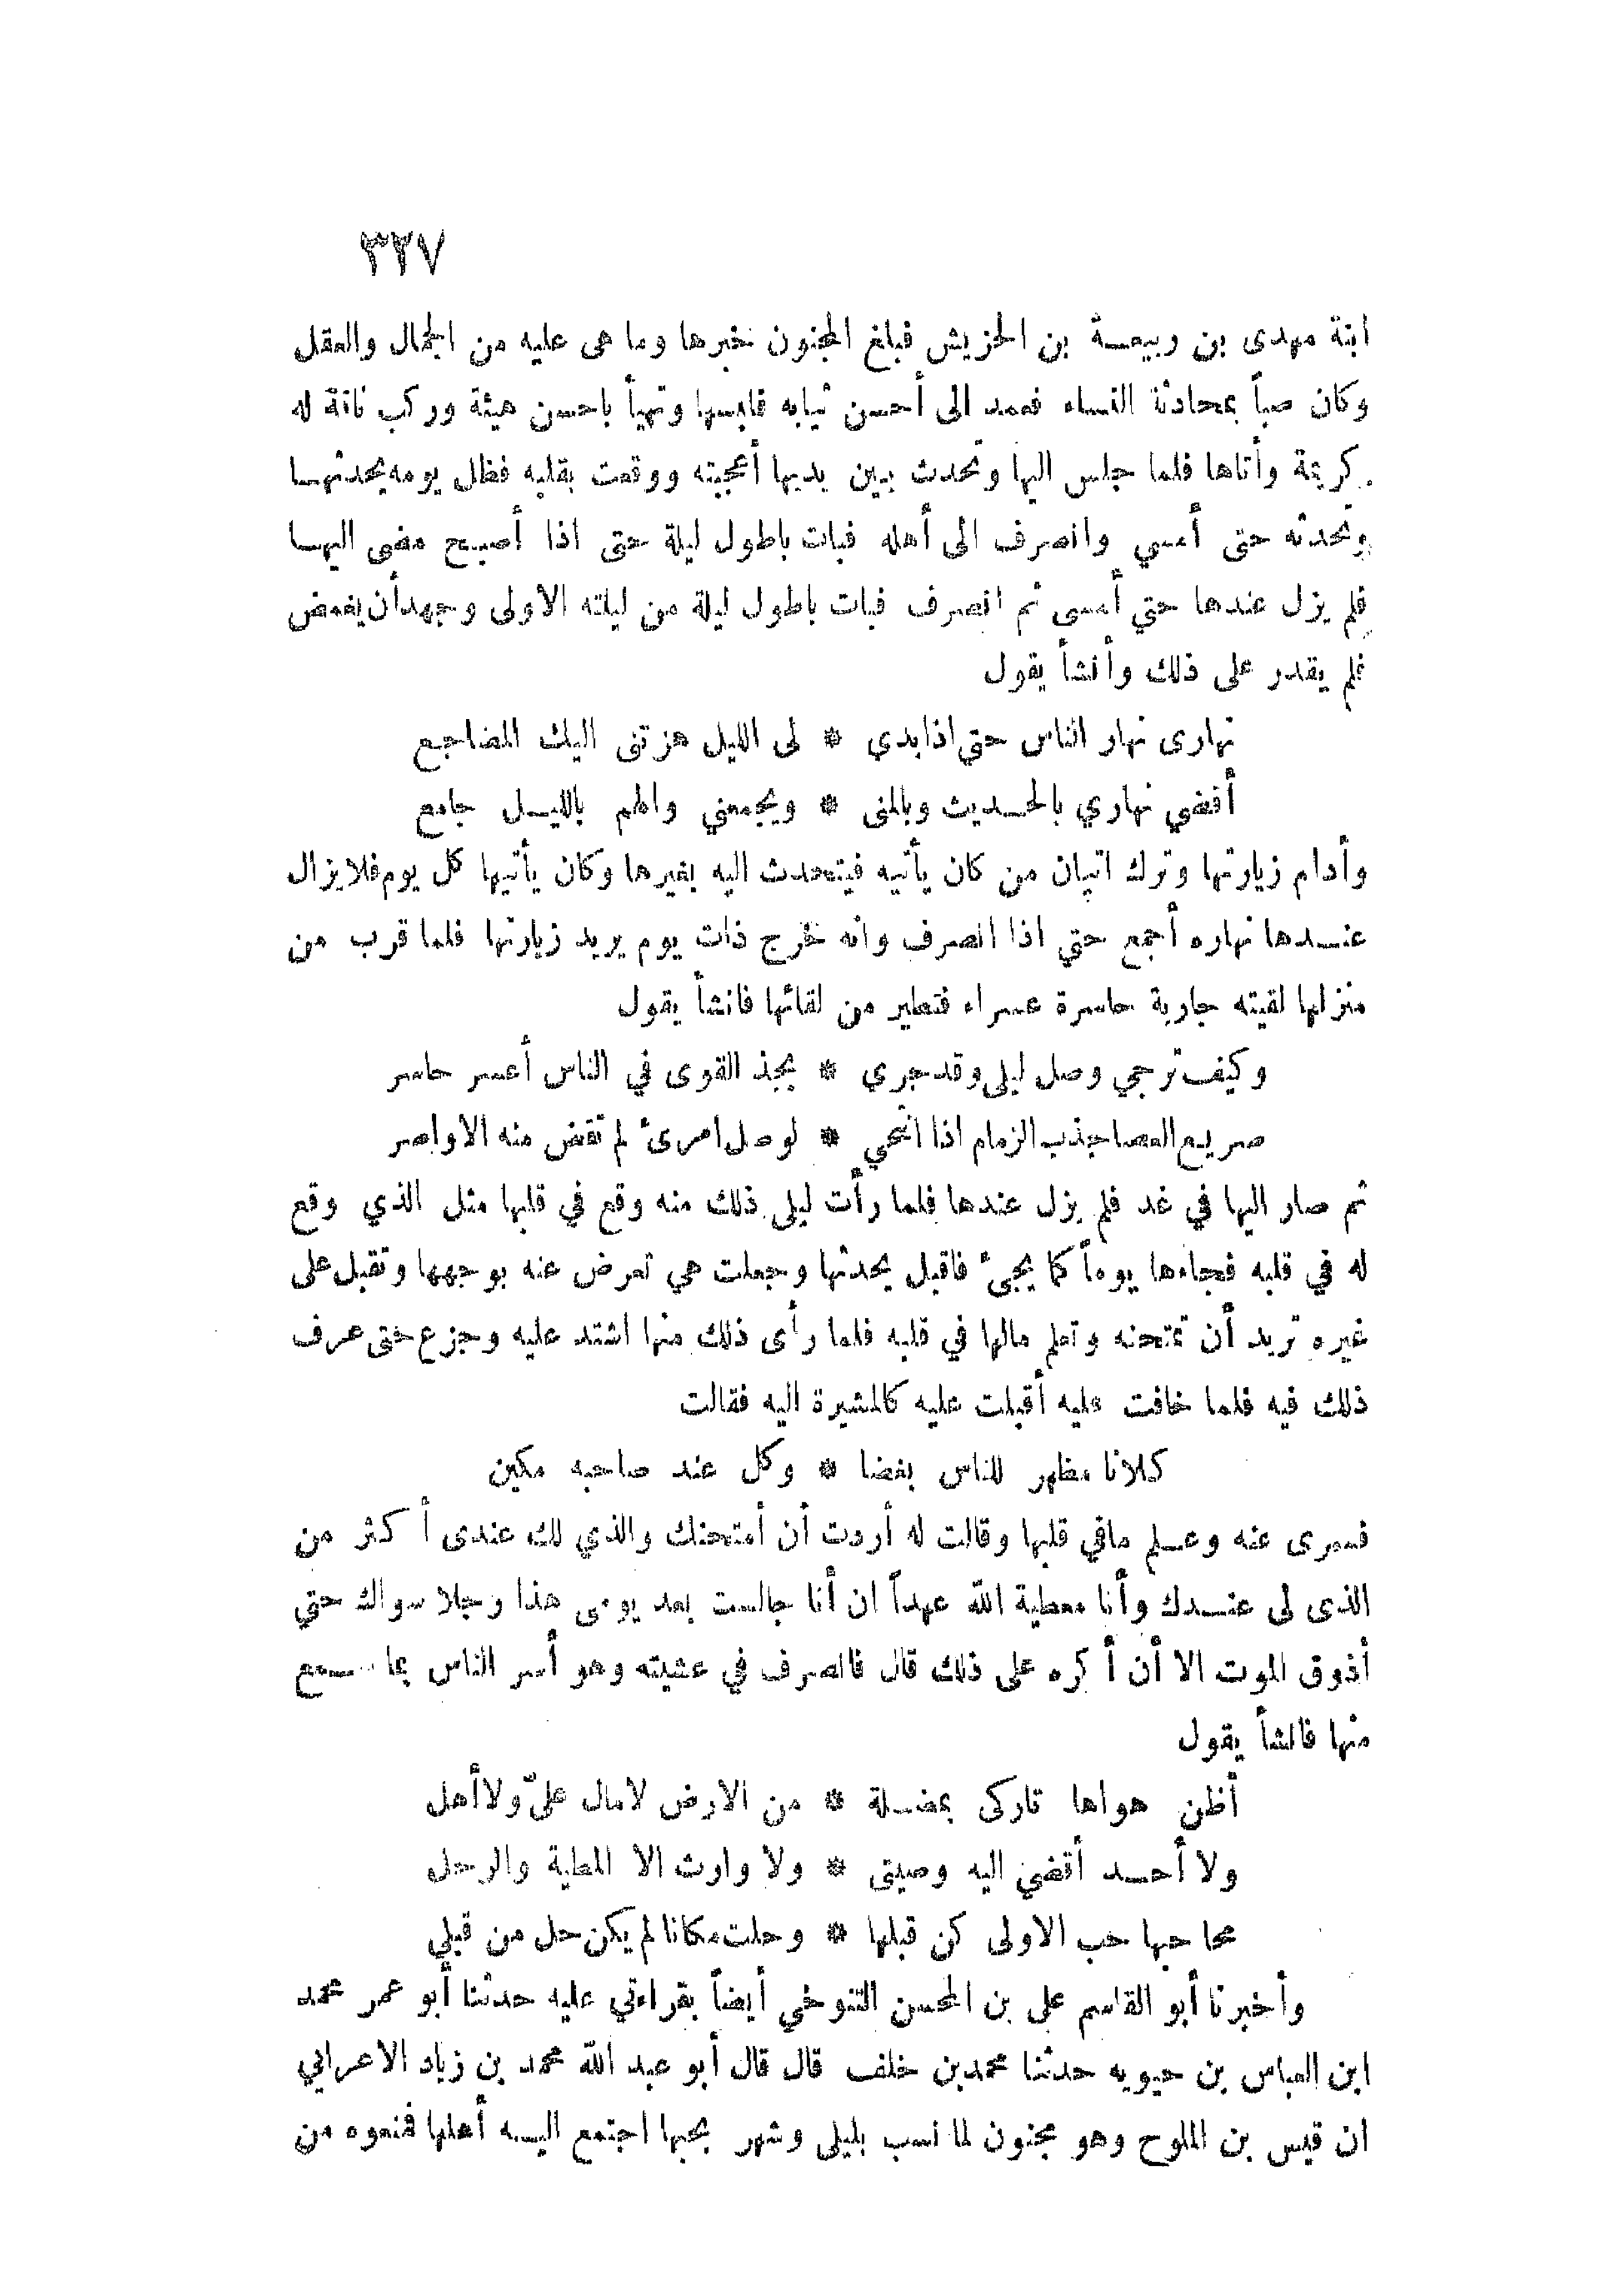 ٣٢٧
ابنة مهدى بن ربيعة بن الحريش فبلغ المجنون خبرها وما هى عليه من الجمال والعقل
وكان صباً بمحادثة النساء فعمد الى أحسن ثيابه فلبسها وتهيأ باحسن هيئة وركب ناقة له
كريمة وأتاها فلما جلس اليها وتحدث بين يديها أعجبته ووقعت بقلبه فظل يومه يحدثها
وتحدثه حتى أمسي وانصرف الى أهله فبات باطول ليلة حتى اذا أصبح مضى اليها
فلم يزل عندها حتي أمسى ثم انصرف فبات باطول ليلة من ليلته الاولى وجهد أن يغمض
فلم يقدر على ذلك وأنشأ يقول
نهارى نهار الناس حتي اذا بدى * لى الليل هزتنى اليك المضاجع
أقضي نهاري بالحديث وبالمنى * ويجمعني والهم بالليل جامع
وأدام زيارتها وترك اتيان من كان يأتيه فيتحدث اليه بغيرها وكان يأتيها كل يوم فلا يزال
عندها نهاره أجمع حتي اذا انصرف وانه خرج ذات يوم يريد زيارتها فلما قرب من
منزلها لقيته جارية حاسرة عسراء فتطير من لقائها فانشأ يقول
وكيف ترجي وصل ليلى وقد جري * بجذ القوى في الناس أعسر حاسر
صريع العصا جذب الزمام اذا انتحي * لوصل امرئ لم تقض منه الاواصر
ثم صار اليها في غد فلم يزل عندها فلما رأت ليلى ذلك منه وقع في قلبها مثل الذي وقع
له في قلبه فجاءها يوماً كما يجئ فاقبل يحدثها وجعلت هي تعرض عنه بوجهها وتقبل على
غيره تريد أن تمتحنه وتعلم مالها في قلبه فلما رأى ذلك منها اشتد عليه وجزع حتى عرف
ذلك فيه فلما خافت عليه أقبلت عليه كالمشيرة اليه فقالت
كلانا مظهر للناس بغضا * وكل عند صاحبه مكين
فسرى عنه وعلم مافي قلبها وقالت له أردت أن أمتحنك والذي لك عندى أكثر من
الذى لى عندك وأنا معطية الله عهداً ان أنا جالست بعد يومى هذا رجلا سواك حتي
أذوق الموت الا أن أكره على ذلك قال فانصرف في عشيته وهو أسر الناس بما سمع
منها فانشأ يقول
أظن هواها تاركى بمضلة * من الارض لا مال عليّ ولا أهل
ولا أحد أقضي اليه وصيتى * ولا وارث الا المطية والرحل
محا حبها حب الاولى كن قبلها * وحلت مكانا لم يكن حل من قبلي
وأخبرنا أبو القاسم على بن المحسن التنوخي أيضاً بقراءتي عليه حدثنا أبو عمر محمد
ابن العباس بن حيويه حدثنا محمد بن خلف قال قال أبو عبد الله محمد بن زياد الاعرابي
ان قيس بن الملوح وهو مجنون لما نسب بليلى وشهر بحبها اجتمع اليه أهلها فمنعوه من